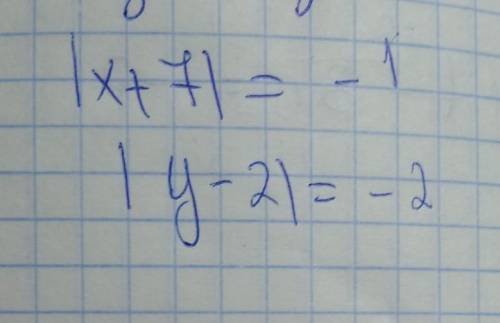 |x+7| = -1
|y-2| = -2